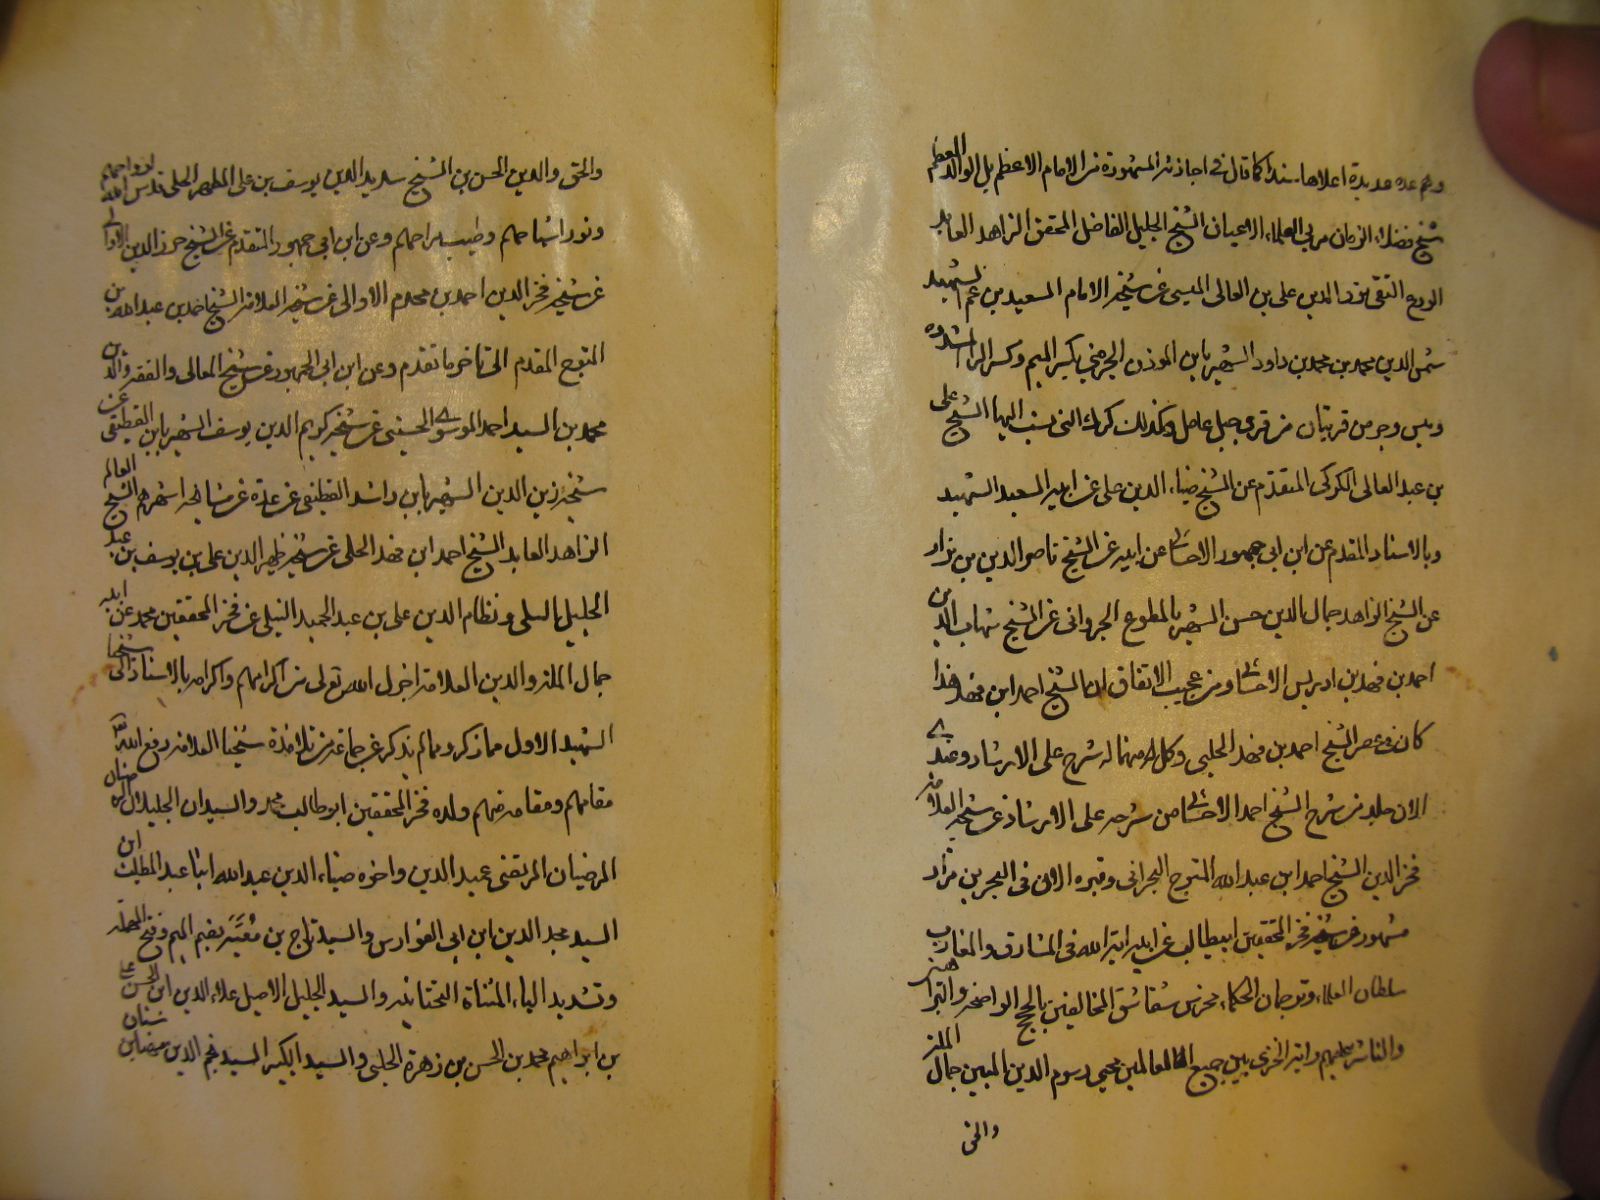 وهم عدة عديدة اعلاها سندا كما قال في اجازته المشهورة من الامام الاعظم بل الوالد المعظم
شيخ فضلاء الزمان مربي العلماء الاعيان الشيخ الجليل الفاضل المحقق الزاهد العابد
الورع التقي نور الدين علي بن العالي الميسي عن شيخه الامام السعيد بن عم الشهيد
شمس الدين محمد بن محمد بن داود الشهير بابن الموذن الجزيني بكسر الميم وكسر الراء المشدده
وميس وجزين قريتان من قرى جبل عامل وكذلك كرك التي نسب اليها الشيخ علي
بن عبد العالي الكركي المتقدم عن الشيخ ضياء الدين علي عن ابيه السعيد الشهيد
وبالاسناد المقدم عن ابن ابي جمهور الاحسائي عن ابيه عن الشيخ ناصر الدين بن نزار
عن الشيخ الزاهد جمال الدين حسن الشهير بالمطوع الجرواني عن الشيخ شهاب الدين
احمد بن فهد بن ادريس الاحسائي ومن عجيب الاتفاق ان الشيخ احمد ابن فهد هذا
كان في عصر الشيخ احمد بن فهد الحلي وكل منهما له شرح على الارشاد وعندي
الان جلد من شرح الشيخ احمد الاحسائي من شرحه على الارشاد عن شيخه العلامة
فخر الدين الشيخ احمد ابن عبد الله المتوج البحراني وقبره الان في البحرين مزار
مشهور عن شيخه فخر المحققين ابيطالب عن ابيه اية الله في المشارق والمغارب
سلطان العلماء وترجمان الحكماء مخرس شقاشق المخالفين بالحجج الواضحة والبراهين
والناشر عليهم راية الخزي بين جميع العالمين محيي رسوم الدين المبين جمال الملة
والحق
والحق والدين الحسن بن الشيخ سديد الدين يوسف بن علي المطهر الحلي قدس الله ارواحهم
ونور اشباحهم وطيب مراحمهم وعن ابن ابي جمهور المتقدم عن الشيخ حرز الدين الاوالي
عن شيخه فخر الدين احمد بن مخدم الاوالي عن شيخه العلامة الشيخ احمد بن عبد الله بن
المتوج المقدم الى تاخر ما تقدم وعن ابن ابي الجمهور عن شيخ المعالي والفقه والدين
محمد بن السيد احمد الموسوي الحسيني عن شيخه كريم الدين يوسف الشهير بابن القطيفي عن
شيخه زين الدين الشهير بابن راشد القطيفي عن عدة من مشايخه اشهرهم الشيخ العالم
الزاهد العابد الشيخ احمد ابن فهد الحلي عن شيخه ظهير الدين علي بن يوسف بن عبد
الجليل النيلي ونظام الدين علي بن عبد الحميد النيلي عن فخر المحققين محمد عن ابيه
جمال الملة والدين العلامة اجزل الله تعالى من اكرامهم واكرامه بالاسناد الى شيخنا
الشهيد الاول مما ذكر ومما لم يذكر عن جماعة من تلامذة شيخنا العلامة رفع الله
مقامهم ومقامه منهم ولده فخر المحققين ابو طالب محمد والسيدان الجليلان
المرضيان المرتقى عميد الدين واخوه ضياء الدين عبد الله ابنا عبد المطلب ابن
السيد مجد الدين ابن ابي الفوارس والسيد تاج بن معية بضم الميم وفتح المهملة
وتشديد الياء المثناة التحتانية والسيد الجليل الاصيل علاء الدين ابن الحسن علي
بن ابراهيم محمد بن الحسن بن زهرة الحلبي والسيد الكبير السيد نجم الدين مهنا بن سنان